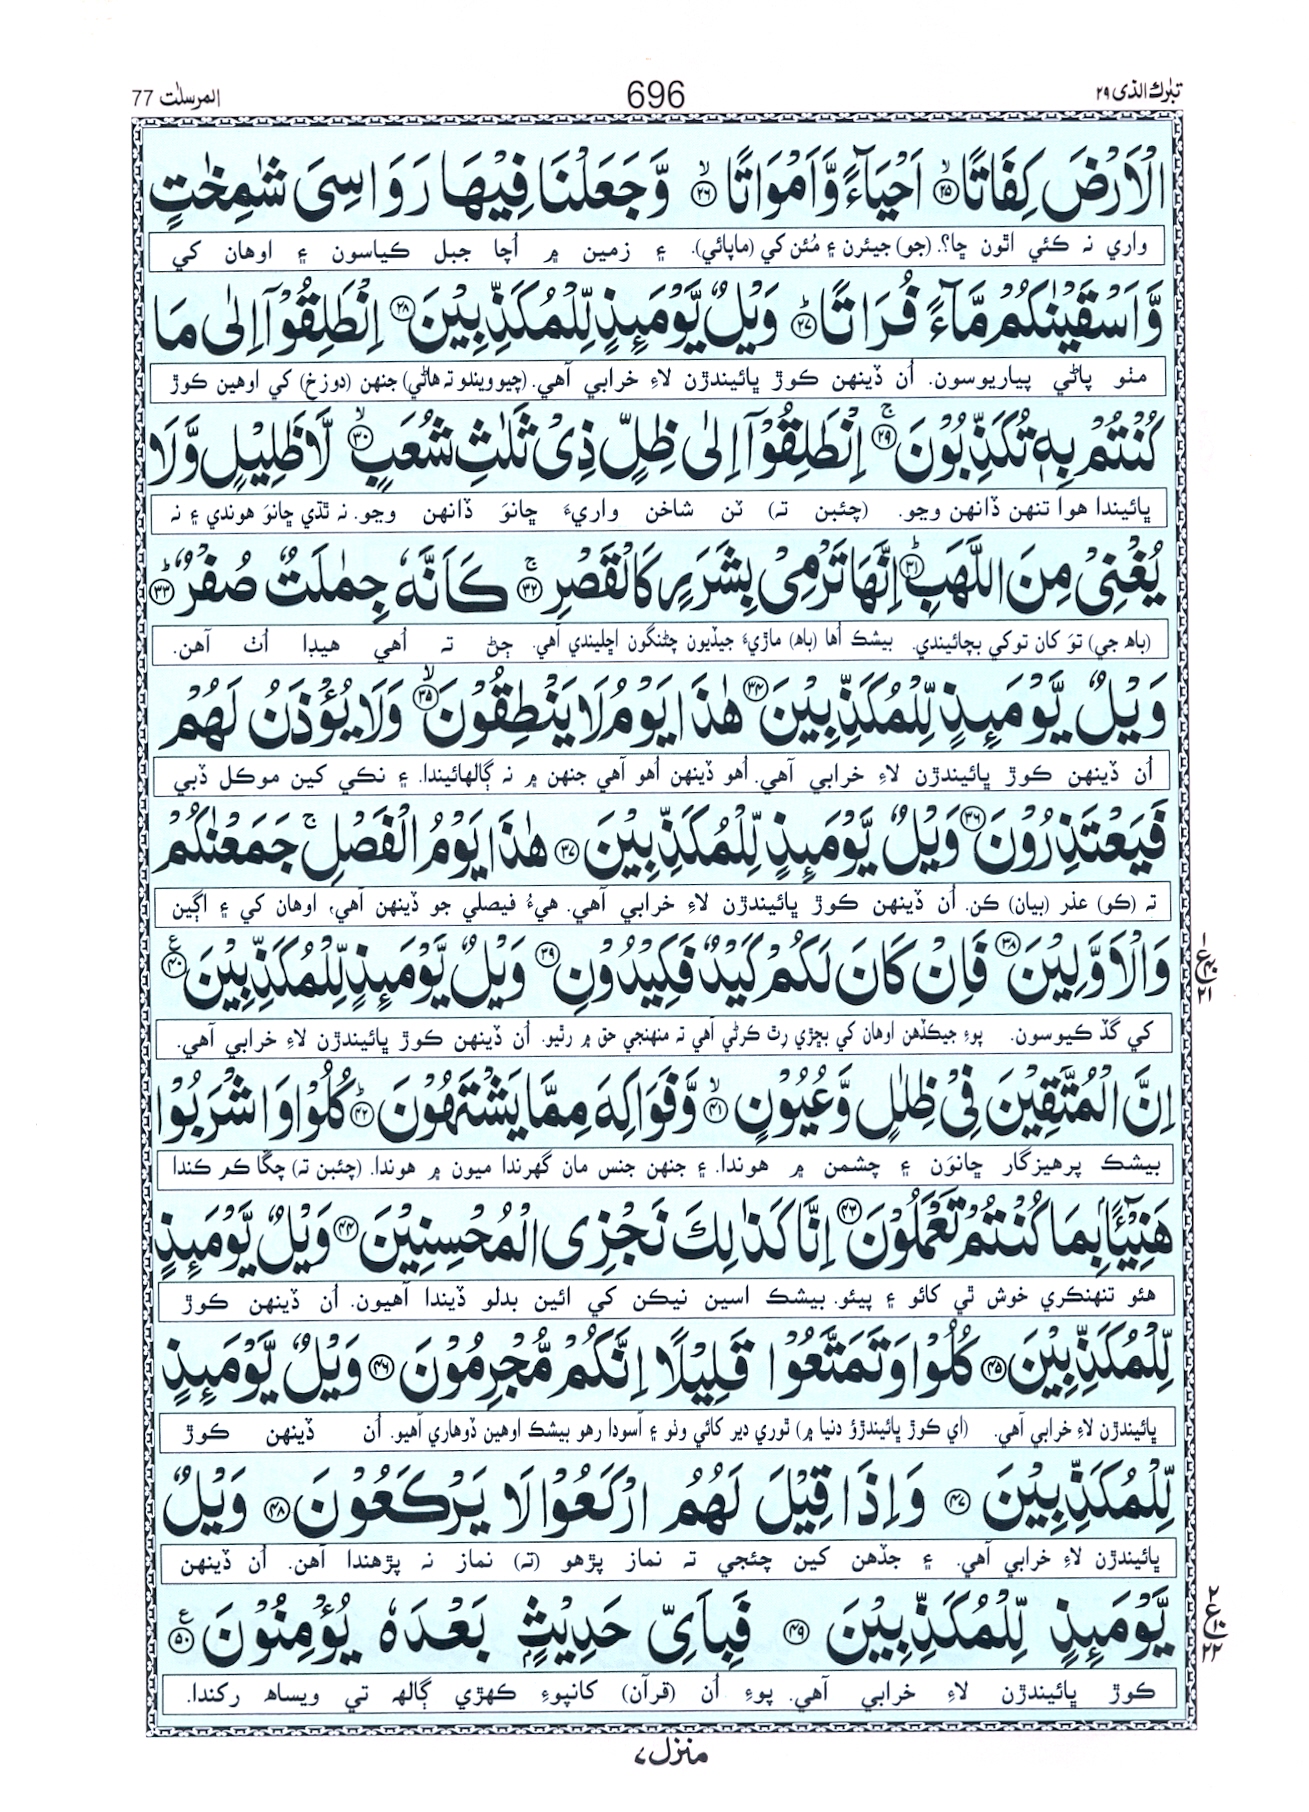 تبٰرك الذى ٢٩ 696 المرسلٰت 77
الْاَرْضَ كِفَاتًا ۙ﴿٢٥﴾ اَحْيَآءً وَّاَمْوَاتًا ۙ﴿٢٦﴾ وَّجَعَلْنَا فِيْهَا رَوَاسِىَ شٰمِخٰتٍ
واري نہ ڪئي اٿون ڇا؟. (جو) جيئرن ۽ مُئن کي (ماپائي). ۽ زمين ۾ اُچا جبل ڪياسون ۽ اوهان کي
وَّاَسْقَيْنٰكُمْ مَّآءً فُرَاتًا ؕ﴿٢٧﴾ وَيْلٌ يَّوْمَىِٕذٍ لِّلْمُكَذِّبِيْنَ ﴿٢٨﴾ اِنْطَلِقُوْٓا اِلٰى مَا
مٺو پاڻي پياريوسون. اُن ڏينهن ڪوڙ ڀائيندڙن لاءِ خرابي آهي. (چيو ويندو تہ هاڻي) جنهن (دوزخ) کي اوهين ڪوڙ
كُنْتُمْ بِهٖ تُكَذِّبُوْنَ ۚ﴿٢٩﴾ اِنْطَلِقُوْٓا اِلٰى ظِلٍّ ذِىْ ثَلٰثِ شُعَبٍ ۙ﴿٣٠﴾ لَّا ظَلِيْلٍ وَّلَا
ڀائيندا هوا تنهن ڏانهن وڃو. (چئبن تہ) ٽن شاخن واريءَ ڇانوَ ڏانهن وڃو. نہ ٿڌي ڇانوَ هوندي ۽ نہ
يُغْنِىْ مِنَ اللَّهَبِ ؕ﴿٣١﴾ اِنَّهَا تَرْمِىْ بِشَرَرٍ كَالْقَصْرِ ۚ﴿٣٢﴾ كَاَنَّهٗ جِمٰلَتٌ صُفْرٌ ؕ﴿٣٣﴾
(باھ جي) توَ کان توکي بچائيندي. بيشڪ اُها (باھ) ماڙيءَ جيڏيون چڻنگون اڇليندي آهي. ڄڻ تہ اُهي هيڊا اُٺ آهن.
وَيْلٌ يَّوْمَىِٕذٍ لِّلْمُكَذِّبِيْنَ ﴿٣٤﴾ هٰذَا يَوْمُ لَا يَنْطِقُوْنَ ۙ﴿٣٥﴾ وَلَا يُؤْذَنُ لَهُمْ
اُن ڏينهن ڪوڙ ڀائيندڙن لاءِ خرابي آهي. اُهو ڏينهن اُهو آهي جنهن ۾ نہ ڳالهائيندا. ۽ نڪي کين موڪل ڏبي
فَيَعْتَذِرُوْنَ ﴿٣٦﴾ وَيْلٌ يَّوْمَىِٕذٍ لِّلْمُكَذِّبِيْنَ ﴿٣٧﴾ هٰذَا يَوْمُ الْفَصْلِ ۚ جَمَعْنٰكُمْ
تہ (ڪو) عذر (بيان) ڪن. اُن ڏينهن ڪوڙ ڀائيندڙن لاءِ خرابي آهي. هيءُ فيصلي جو ڏينهن آهي، اوهان کي ۽ اڳين
وَالْاَوَّلِيْنَ ﴿٣٨﴾ فَاِنْ كَانَ لَكُمْ كَيْدٌ فَكِيْدُوْنِ ﴿٣٩﴾ وَيْلٌ يَّوْمَىِٕذٍ لِّلْمُكَذِّبِيْنَ ﴿٤٠﴾ ع
١ ع ٤٠ ٢١
کي گڏ ڪيوسون. پوءِ جيڪڏهن اوهان کي بڇڙي رِٿ ڪرڻي آهي تہ منهنجي حق ۾ رٿيو. اُن ڏينهن ڪوڙ ڀائيندڙن لاءِ خرابي آهي.
اِنَّ الْمُتَّقِيْنَ فِىْ ظِلٰلٍ وَّعُيُوْنٍ ۙ﴿٤١﴾ وَّفَوَاكِهَ مِمَّا يَشْتَهُوْنَ ؕ﴿٤٢﴾ كُلُوْا وَاشْرَبُوْا
بيشڪ پرهيزگار ڇانوَن ۽ چشمن ۾ هوندا. ۽ جنهن جنس مان گهرندا ميون ۾ هوندا. (چئبن تہ) چڱا ڪم ڪندا
هَنِيْٓــًٔا بِمَا كُنْتُمْ تَعْمَلُوْنَ ﴿٤٣﴾ اِنَّا كَذٰلِكَ نَجْزِى الْمُحْسِنِيْنَ ﴿٤٤﴾ وَيْلٌ يَّوْمَىِٕذٍ
هئو تنهنڪري خوش ٿي کائو ۽ پيئو. بيشڪ اسين نيڪن کي ائين بدلو ڏيندا آهيون. اُن ڏينهن ڪوڙ
لِّلْمُكَذِّبِيْنَ ﴿٤٥﴾ كُلُوْا وَتَمَتَّعُوْا قَلِيْلًا اِنَّكُمْ مُّجْرِمُوْنَ ﴿٤٦﴾ وَيْلٌ يَّوْمَىِٕذٍ
ڀائيندڙن لاءِ خرابي آهي. (اي ڪوڙ ڀائيندڙؤ دنيا ۾) ٿوري دير کائي وٺو ۽ آسودا رهو بيشڪ اوهين ڏوهاري آهيو. اُن ڏينهن ڪوڙ
لِّلْمُكَذِّبِيْنَ ﴿٤٧﴾ وَاِذَا قِيْلَ لَهُمُ ارْكَعُوْا لَا يَرْكَعُوْنَ ﴿٤٨﴾ وَيْلٌ
ڀائيندڙن لاءِ خرابي آهي. ۽ جڏهن کين چئجي تہ نماز پڙهو (تہ) نماز نہ پڙهندا آهن. اُن ڏينهن
يَّوْمَىِٕذٍ لِّلْمُكَذِّبِيْنَ ﴿٤٩﴾ فَبِاَىِّ حَدِيْثٍۭ بَعْدَهٗ يُؤْمِنُوْنَ ﴿٥٠﴾ ع
٢ ع ١٠ ٢٢
ڪوڙ ڀائيندڙن لاءِ خرابي آهي. پوءِ اُن (قرآن) کانپوءِ ڪهڙي ڳالهہ تي ويساھ رکندا.
منزل ٧